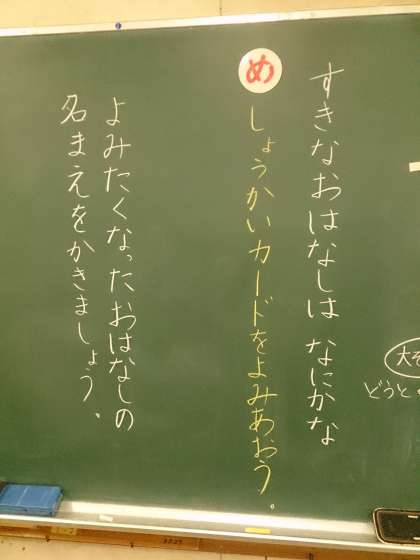 すきなおはなしは なにかな
め
しょうかいカードをよみあおう。
よみたくなったおはなしの
名まえをかきましょう。
どうと